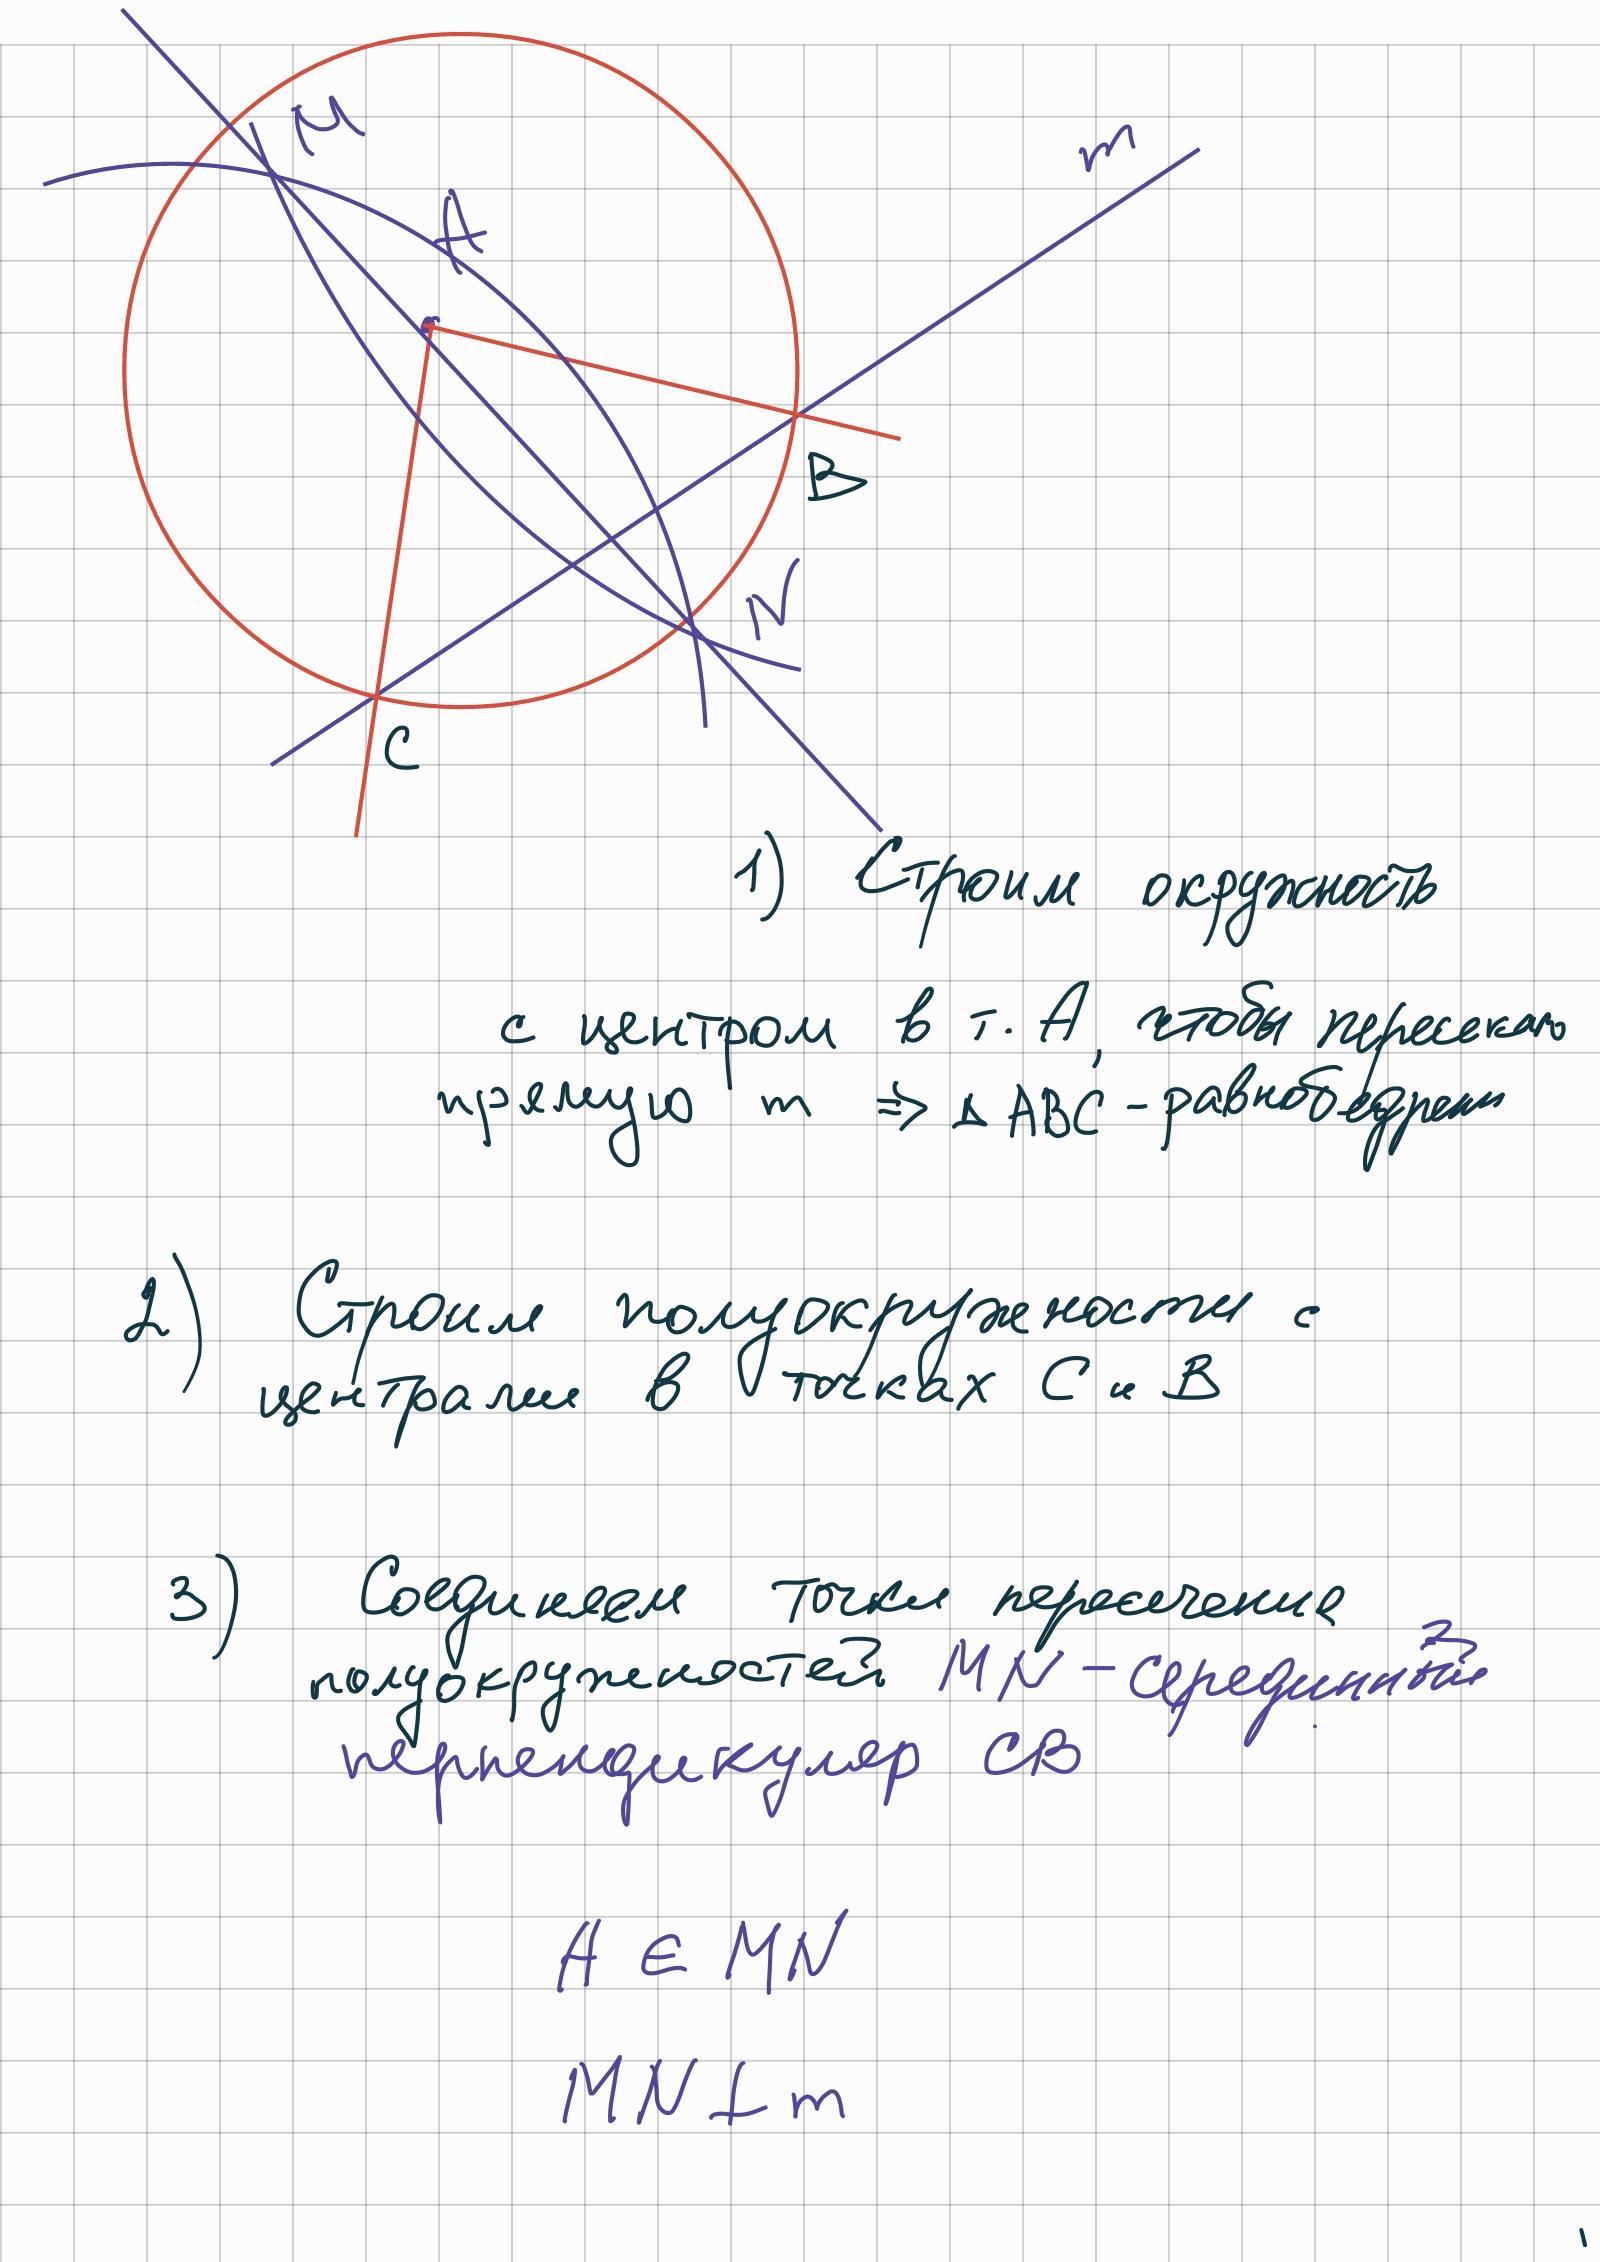 M
A
m
B
N
C
1) Строим окружность
с центром в т. А, чтобы пересекало
прямую m ⇒ △ ABC - равнобедрен
2) Строим полуокружности с
центрами в точках С и В
3) Соединяем точки пересечения
полуокружностей MN - серединный
перпендикуляр СВ
A ∈ MN
MN ⊥ m